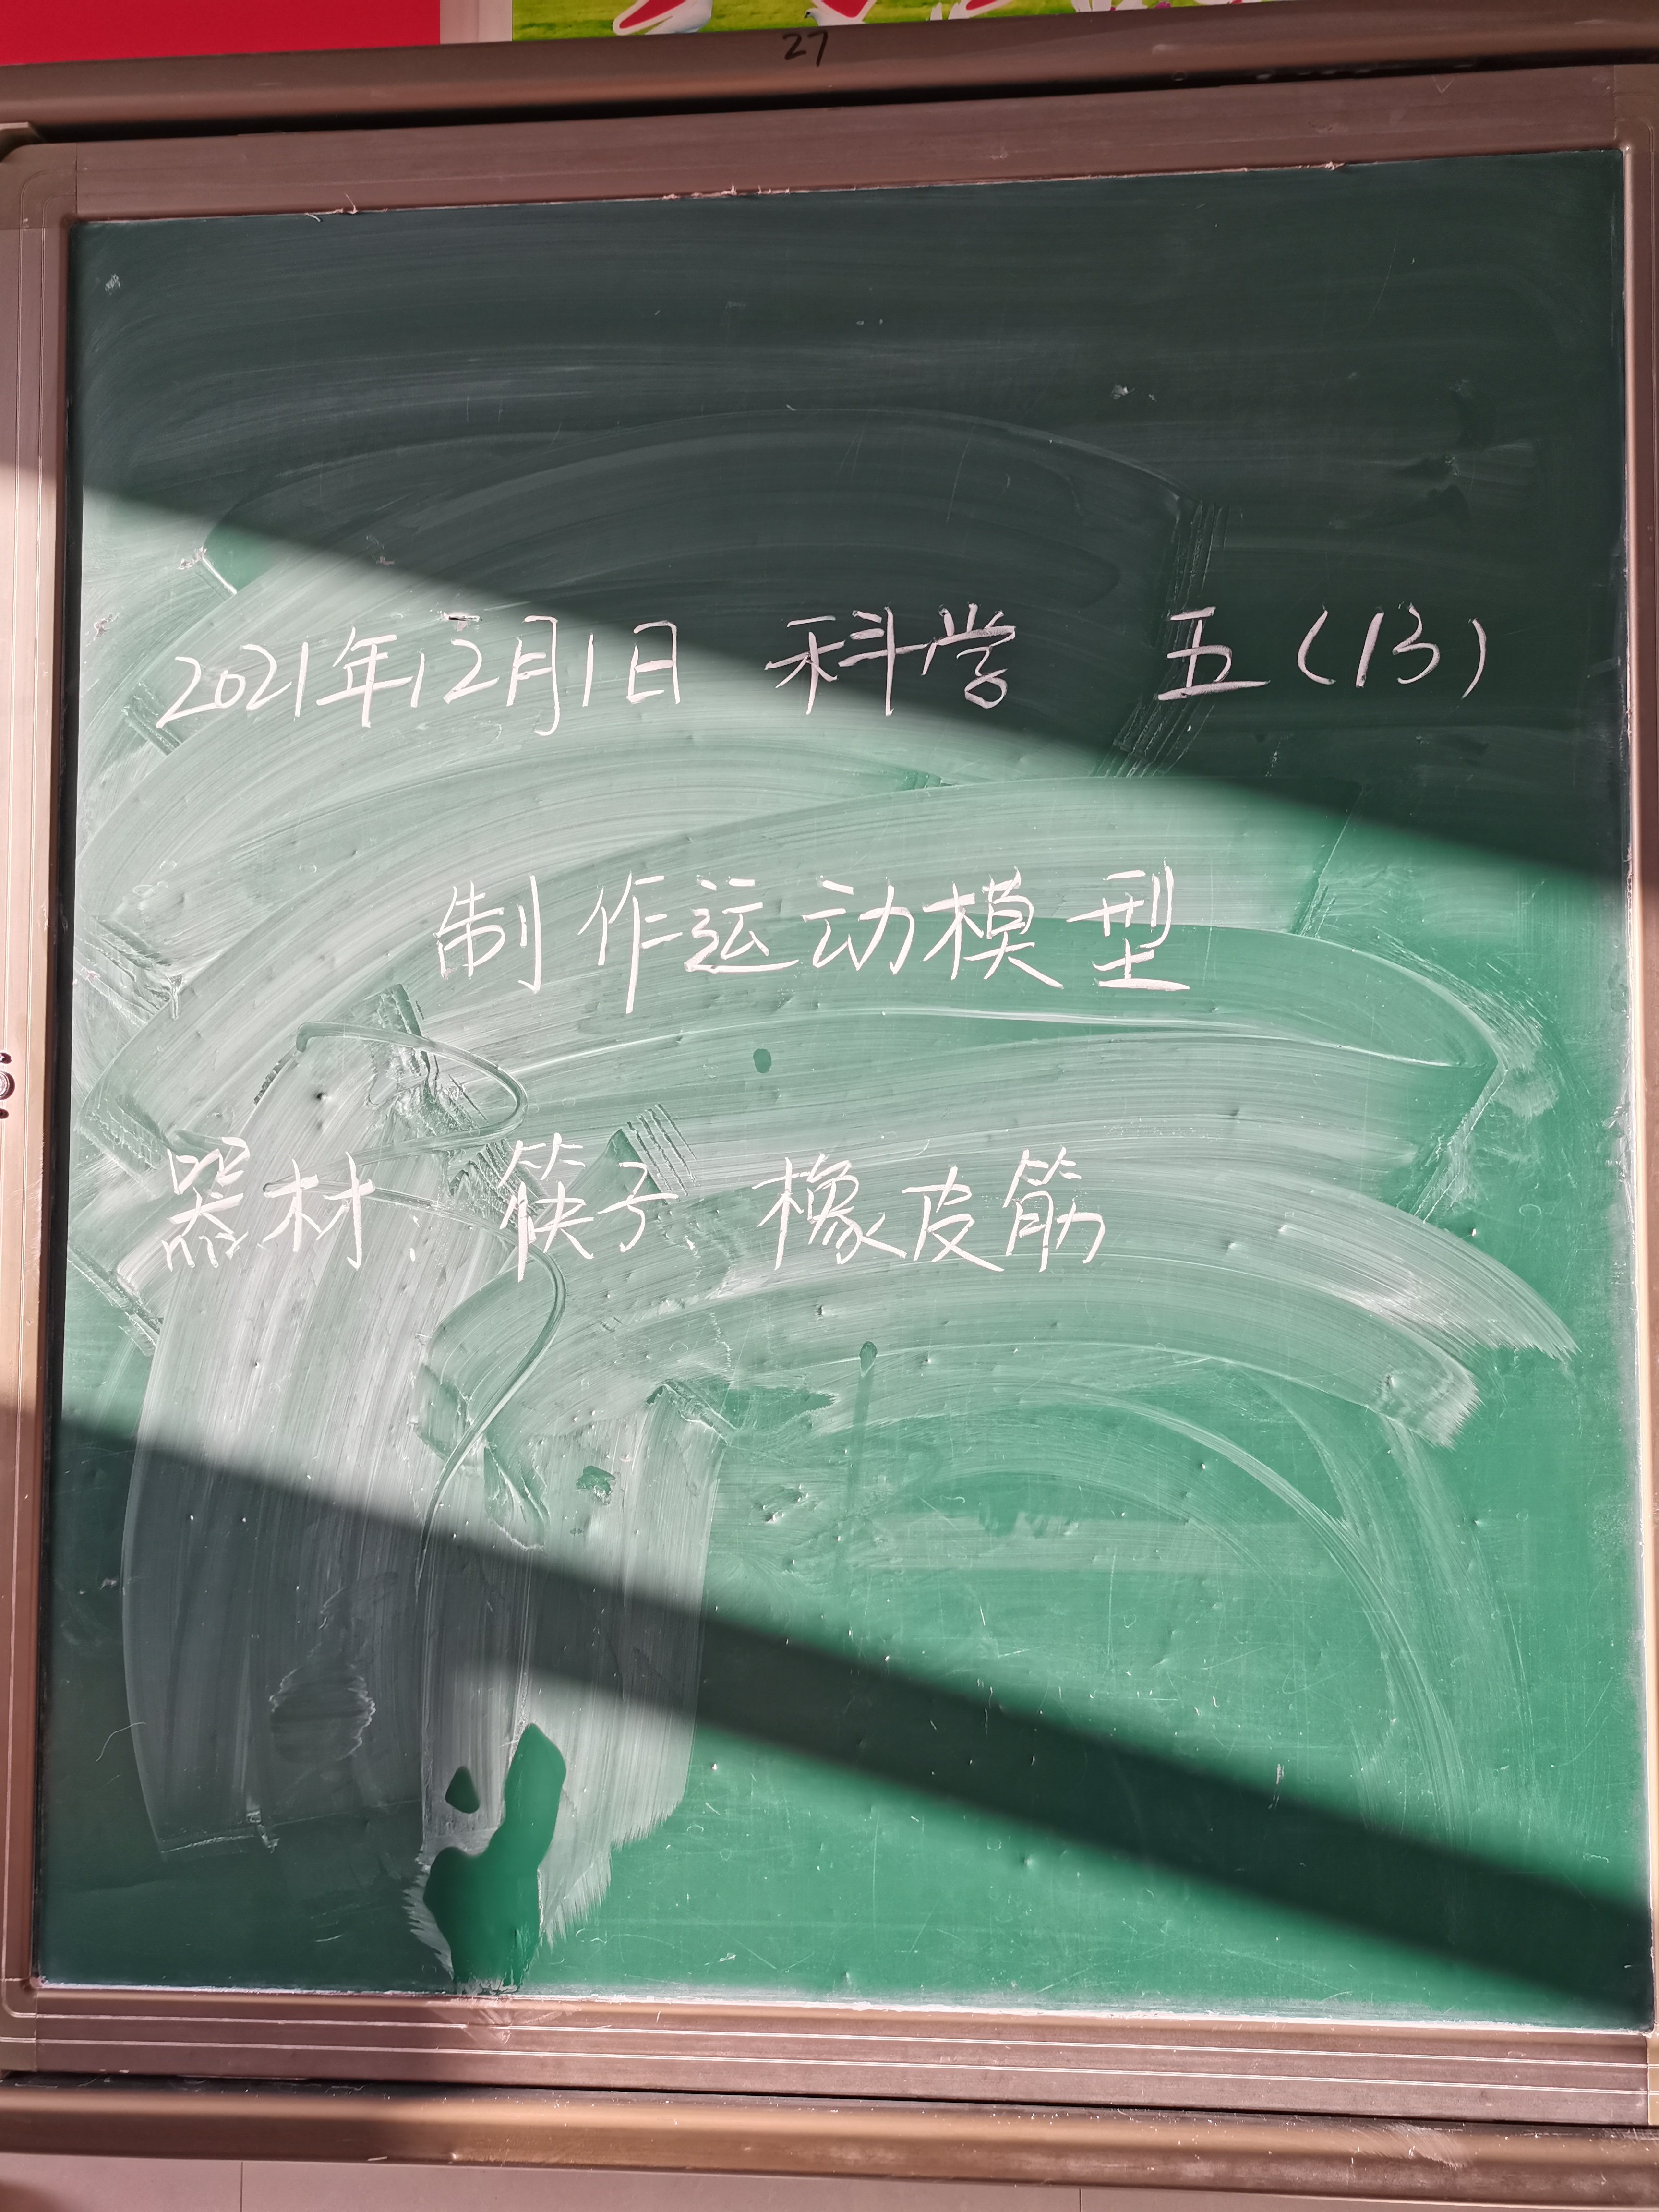 27
2021年12月1日 科学 五(13)
制作运动模型
器材:筷子、橡皮筋